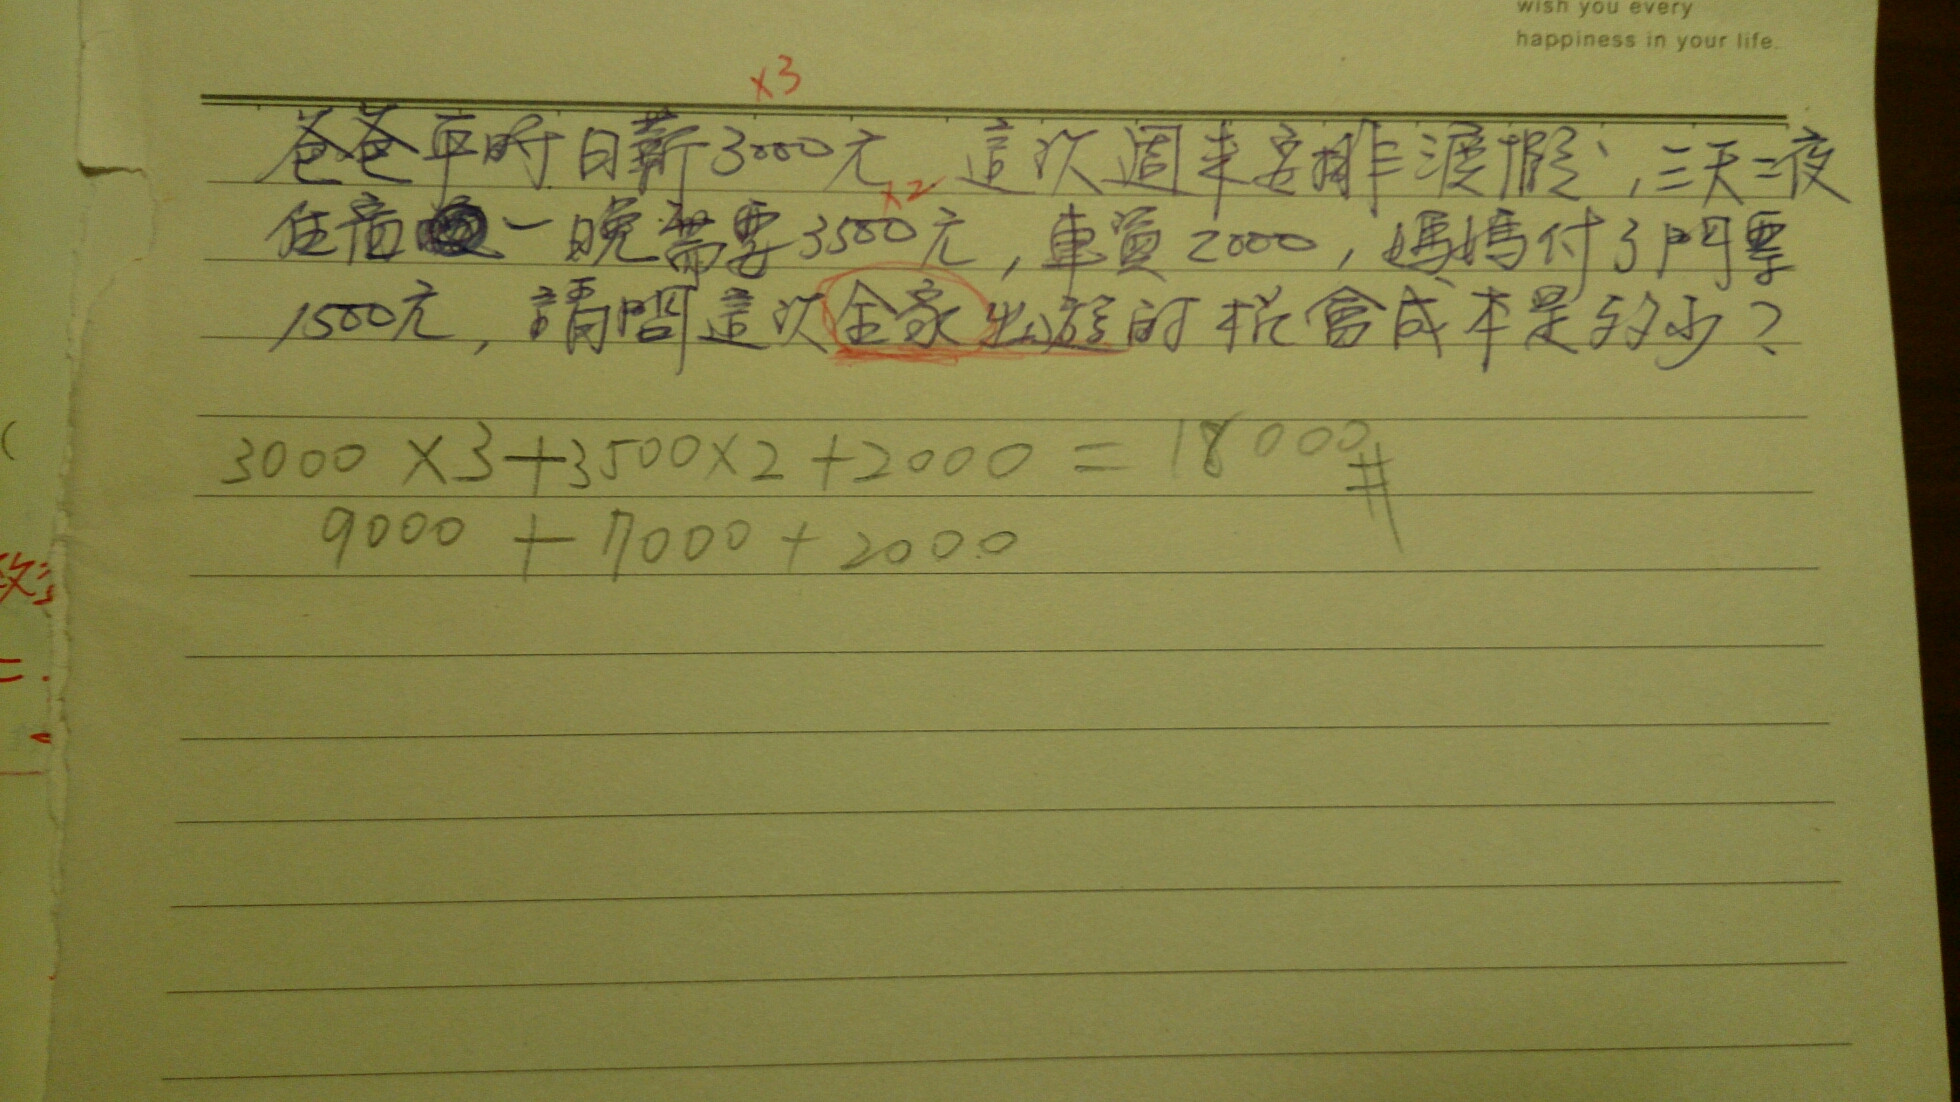 wish you every
happiness in your life.
×3
爸爸平時日薪3000元 這次週末安排渡假,三天二夜
×2
住宿一晚需要3500元,車資2000,媽媽付了門票
1500元,請問這次全家出遊的機會成本是多少?
3000 ×3+3500×2+2000 = 18000#
9000 + 7000 + 2000